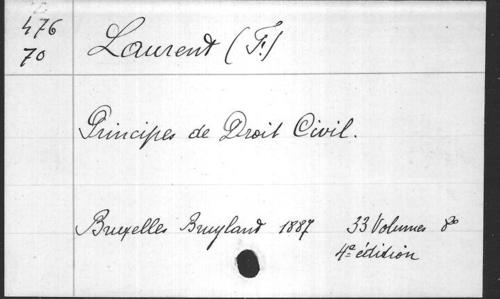 476
70
Laurent (F.)
Principes de Droit Civil.
Bruxelles Bruyland 1887 33 Volumes 8o
4e édition